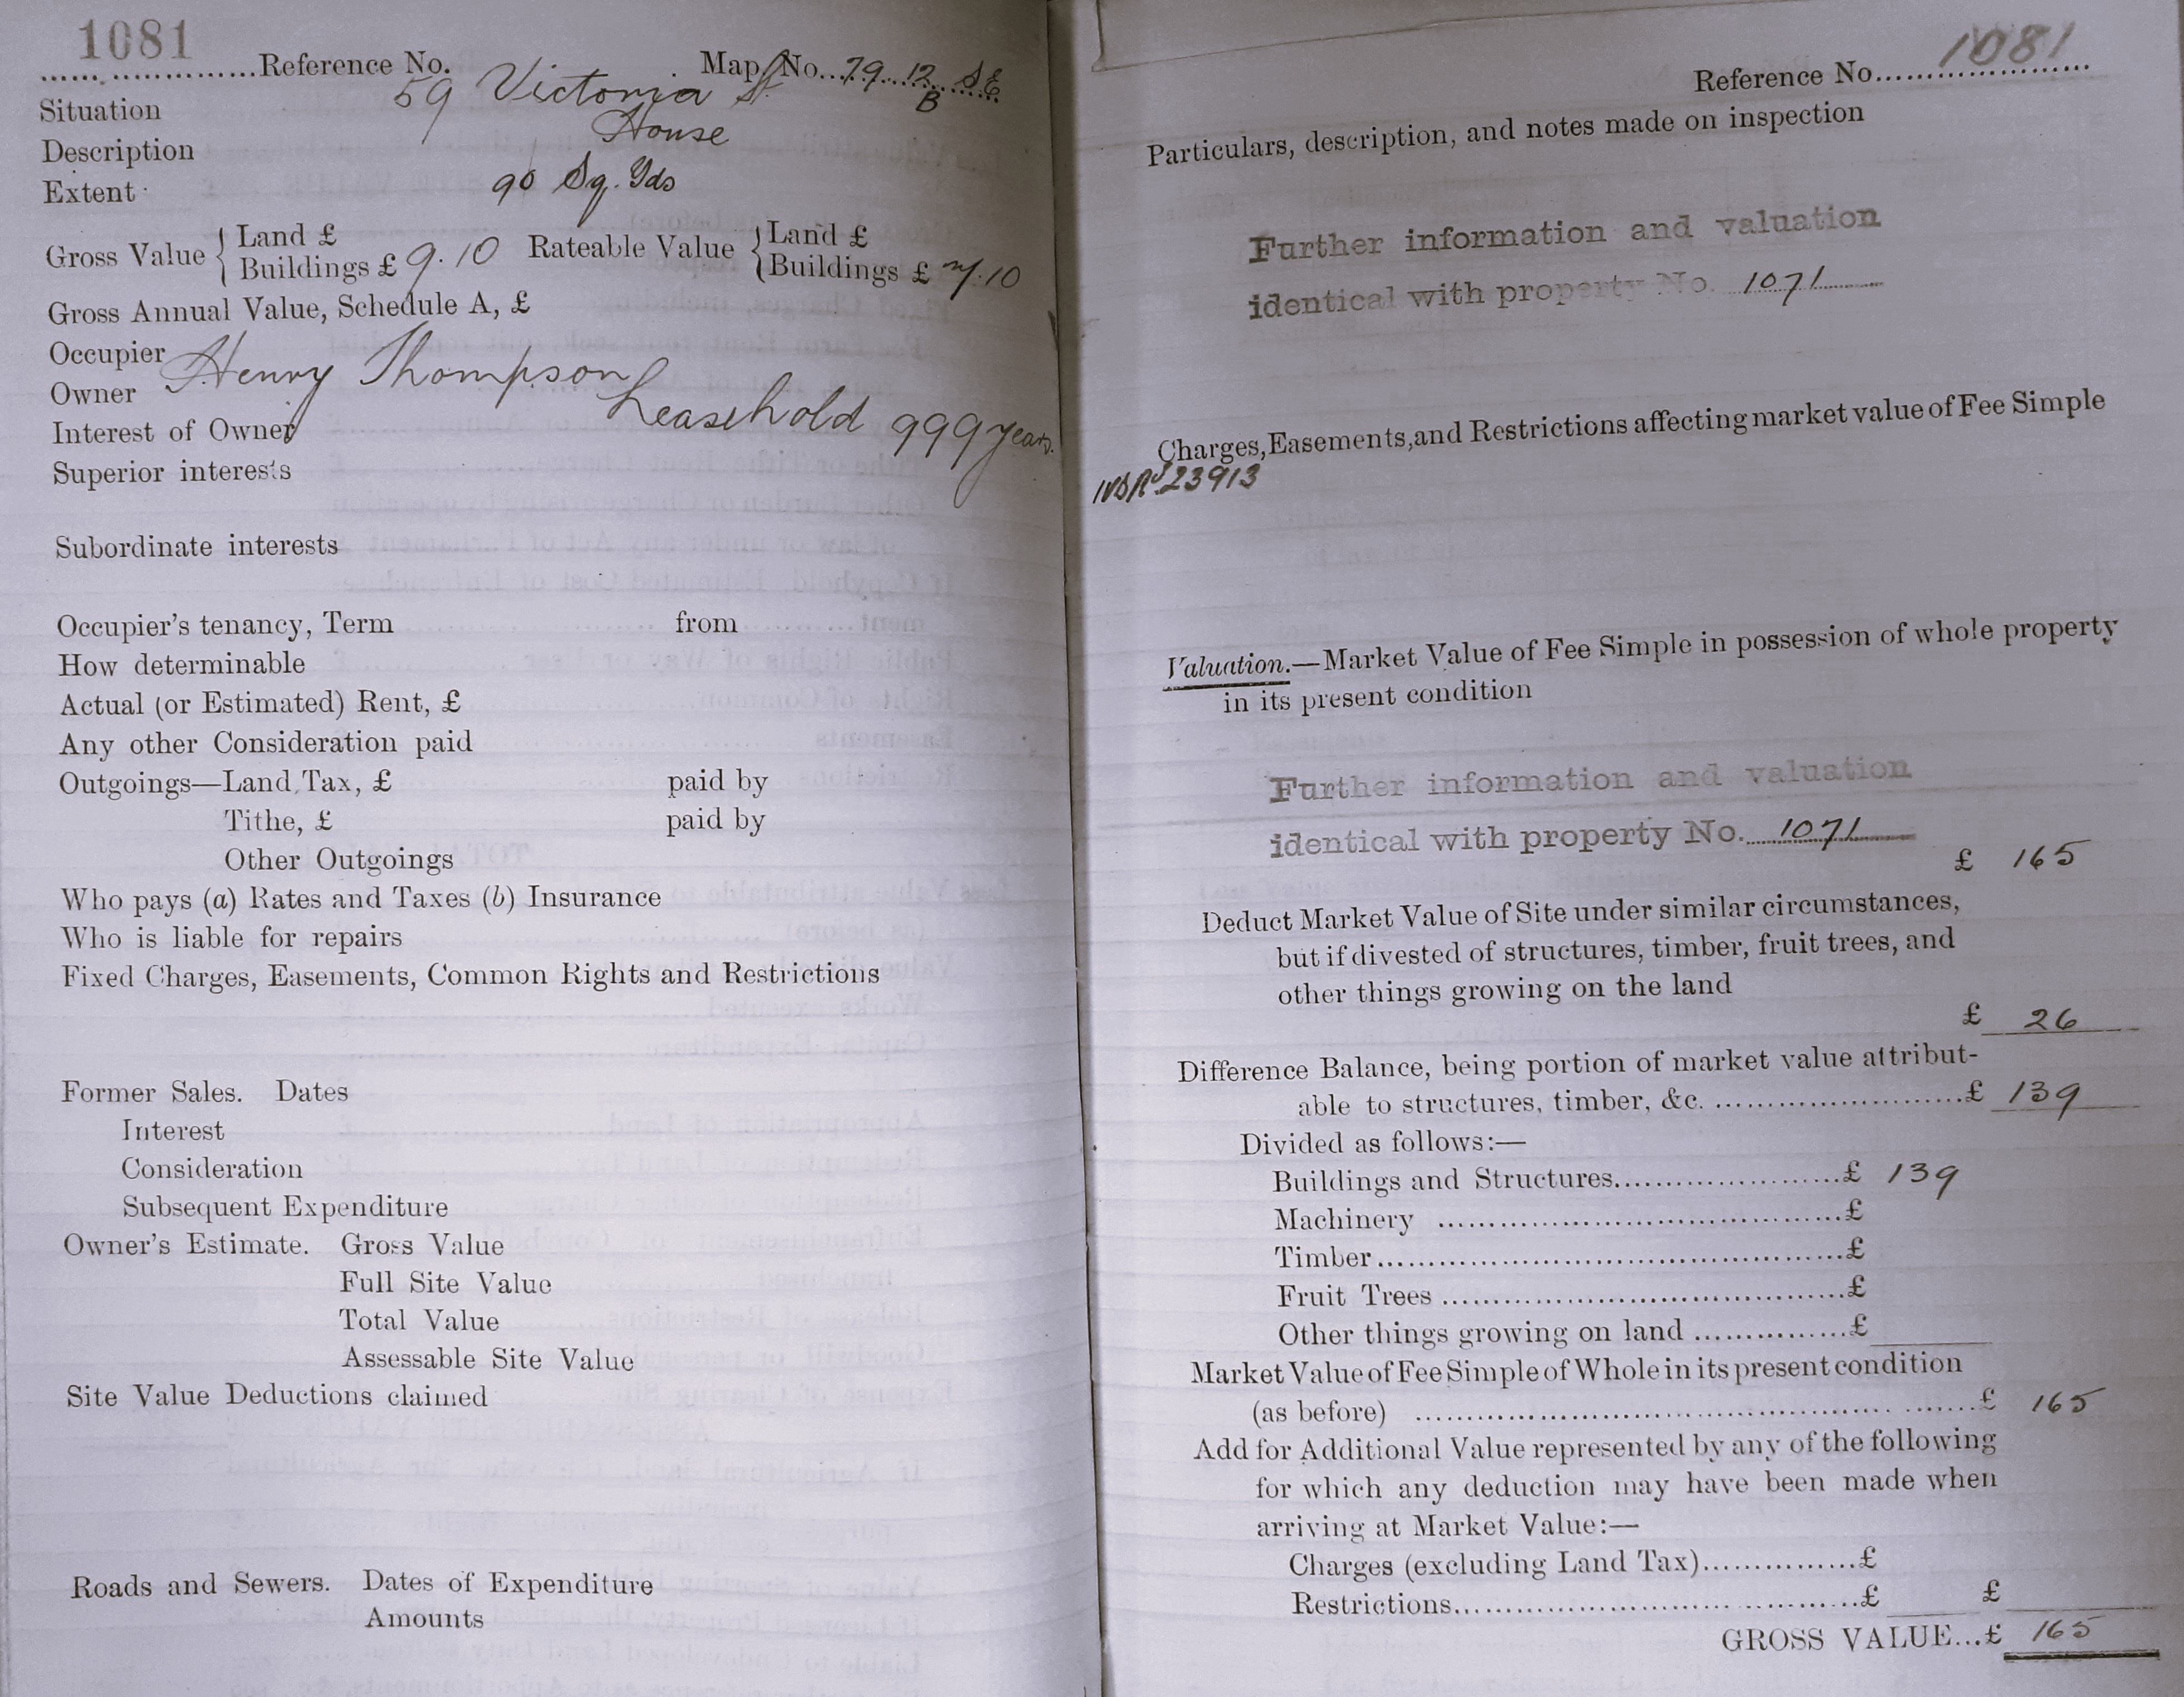 1081
Reference No. Map No. 79.12 SE
B
Situation 59 Victoria St.
Description House
Extent 90 Sq. Yds
Gross Value { Land £ Rateable Value { Land £
Buildings £ 9.10 Buildings £ 7.10
Gross Annual Value, Schedule A, £
Occupier
Owner Henry Thompson
Interest of Owner Leasehold 999 years.
Superior interests
Subordinate interests
Occupier's tenancy, Term from
How determinable
Actual (or Estimated) Rent, £
Any other Consideration paid
Outgoings—Land Tax, £ paid by
Tithe, £ paid by
Other Outgoings
Who pays (a) Rates and Taxes (b) Insurance
Who is liable for repairs
Fixed Charges, Easements, Common Rights and Restrictions
Former Sales. Dates
Interest
Consideration
Subsequent Expenditure
Owner's Estimate. Gross Value
Full Site Value
Total Value
Assessable Site Value
Site Value Deductions claimed
Roads and Sewers. Dates of Expenditure
Amounts
Reference No. 1081
Particulars, description, and notes made on inspection
Further information and valuation
identical with property No. 1071
Charges, Easements, and Restrictions affecting market value of Fee Simple
23913
Valuation.—Market Value of Fee Simple in possession of whole property
in its present condition
Further information and valuation
identical with property No. 1071
£ 165
Deduct Market Value of Site under similar circumstances,
but if divested of structures, timber, fruit trees, and
other things growing on the land
£ 26
Difference Balance, being portion of market value attribut-
able to structures, timber, &c. £ 139
Divided as follows:—
Buildings and Structures £ 139
Machinery £
Timber £
Fruit Trees £
Other things growing on land £
Market Value of Fee Simple of Whole in its present condition
(as before) £ 165
Add for Additional Value represented by any of the following
for which any deduction may have been made when
arriving at Market Value:—
Charges (excluding Land Tax) £
Restrictions £ £
GROSS VALUE...£ 165